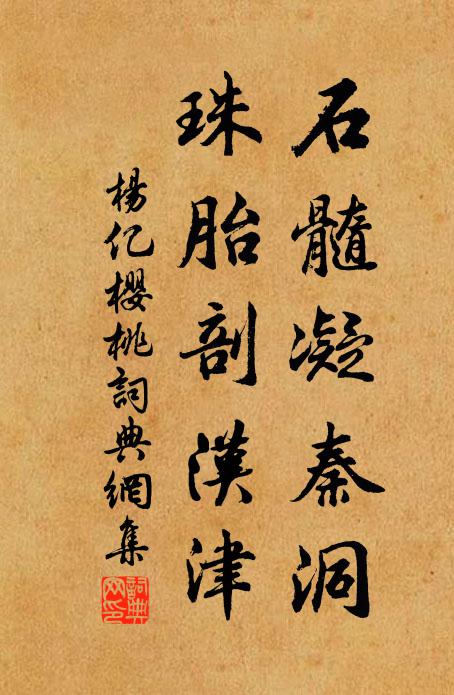 石髓凝秦洞
珠胎剖漢津
楊亿櫻桃詞典網集
詞典网印